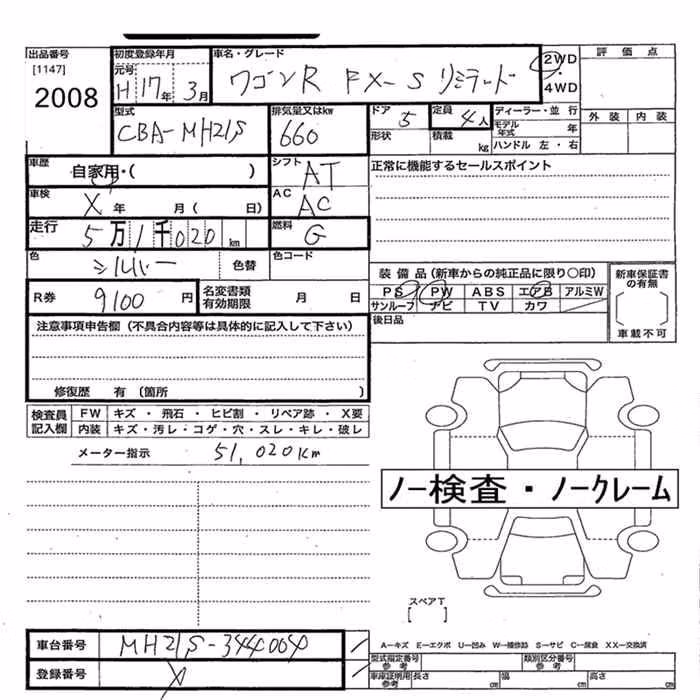 出品番号
[1147]
2008
初度登録年月
元号
H 17年 3月
車名・グレード
ワゴンR FX-S リミテード
2WD
・
4WD
評価点
外装 内装
型式
CBA-MH21S
排気量又はkw
660
ドア 5
形状
定員 4人
積載 kg
ディーラー・並行
モデル年式 年
ハンドル 左・右
車歴
自家用・( )
シフト
AT
車検
X 年 月 ( 日)
AC
AC
走行
5万1千020km
燃料
G
正常に機能するセールスポイント
色
シルバー
色替
色コード
R券
9100円
名変書類
有効期限
月 日
装備品(新車からの純正品に限り○印)
PS PW ABS エアB アルミW
サンルーフ ナビ TV カワ
後日品
新車保証書
の有無
車載不可
注意事項申告欄(不具合内容等は具体的に記入して下さい)
修復歴 有〔箇所 〕
検査員
記入欄
FW キズ・飛石・ヒビ割・リペア跡・X要
内装 キズ・汚レ・コゲ・穴・スレ・キレ・破レ
メーター指示 51,020Km
ノー検査・ノークレーム
スペアT
[ ]
車台番号
MH21S-344004
登録番号
X
A…キズ E…エクボ U…凹み W…補修跡 S…サビ C…腐食 XX…交換済
型式指定番号
参考
類別区分番号
参考
車庫証明用
参考
長さ cm
幅 cm
高さ cm